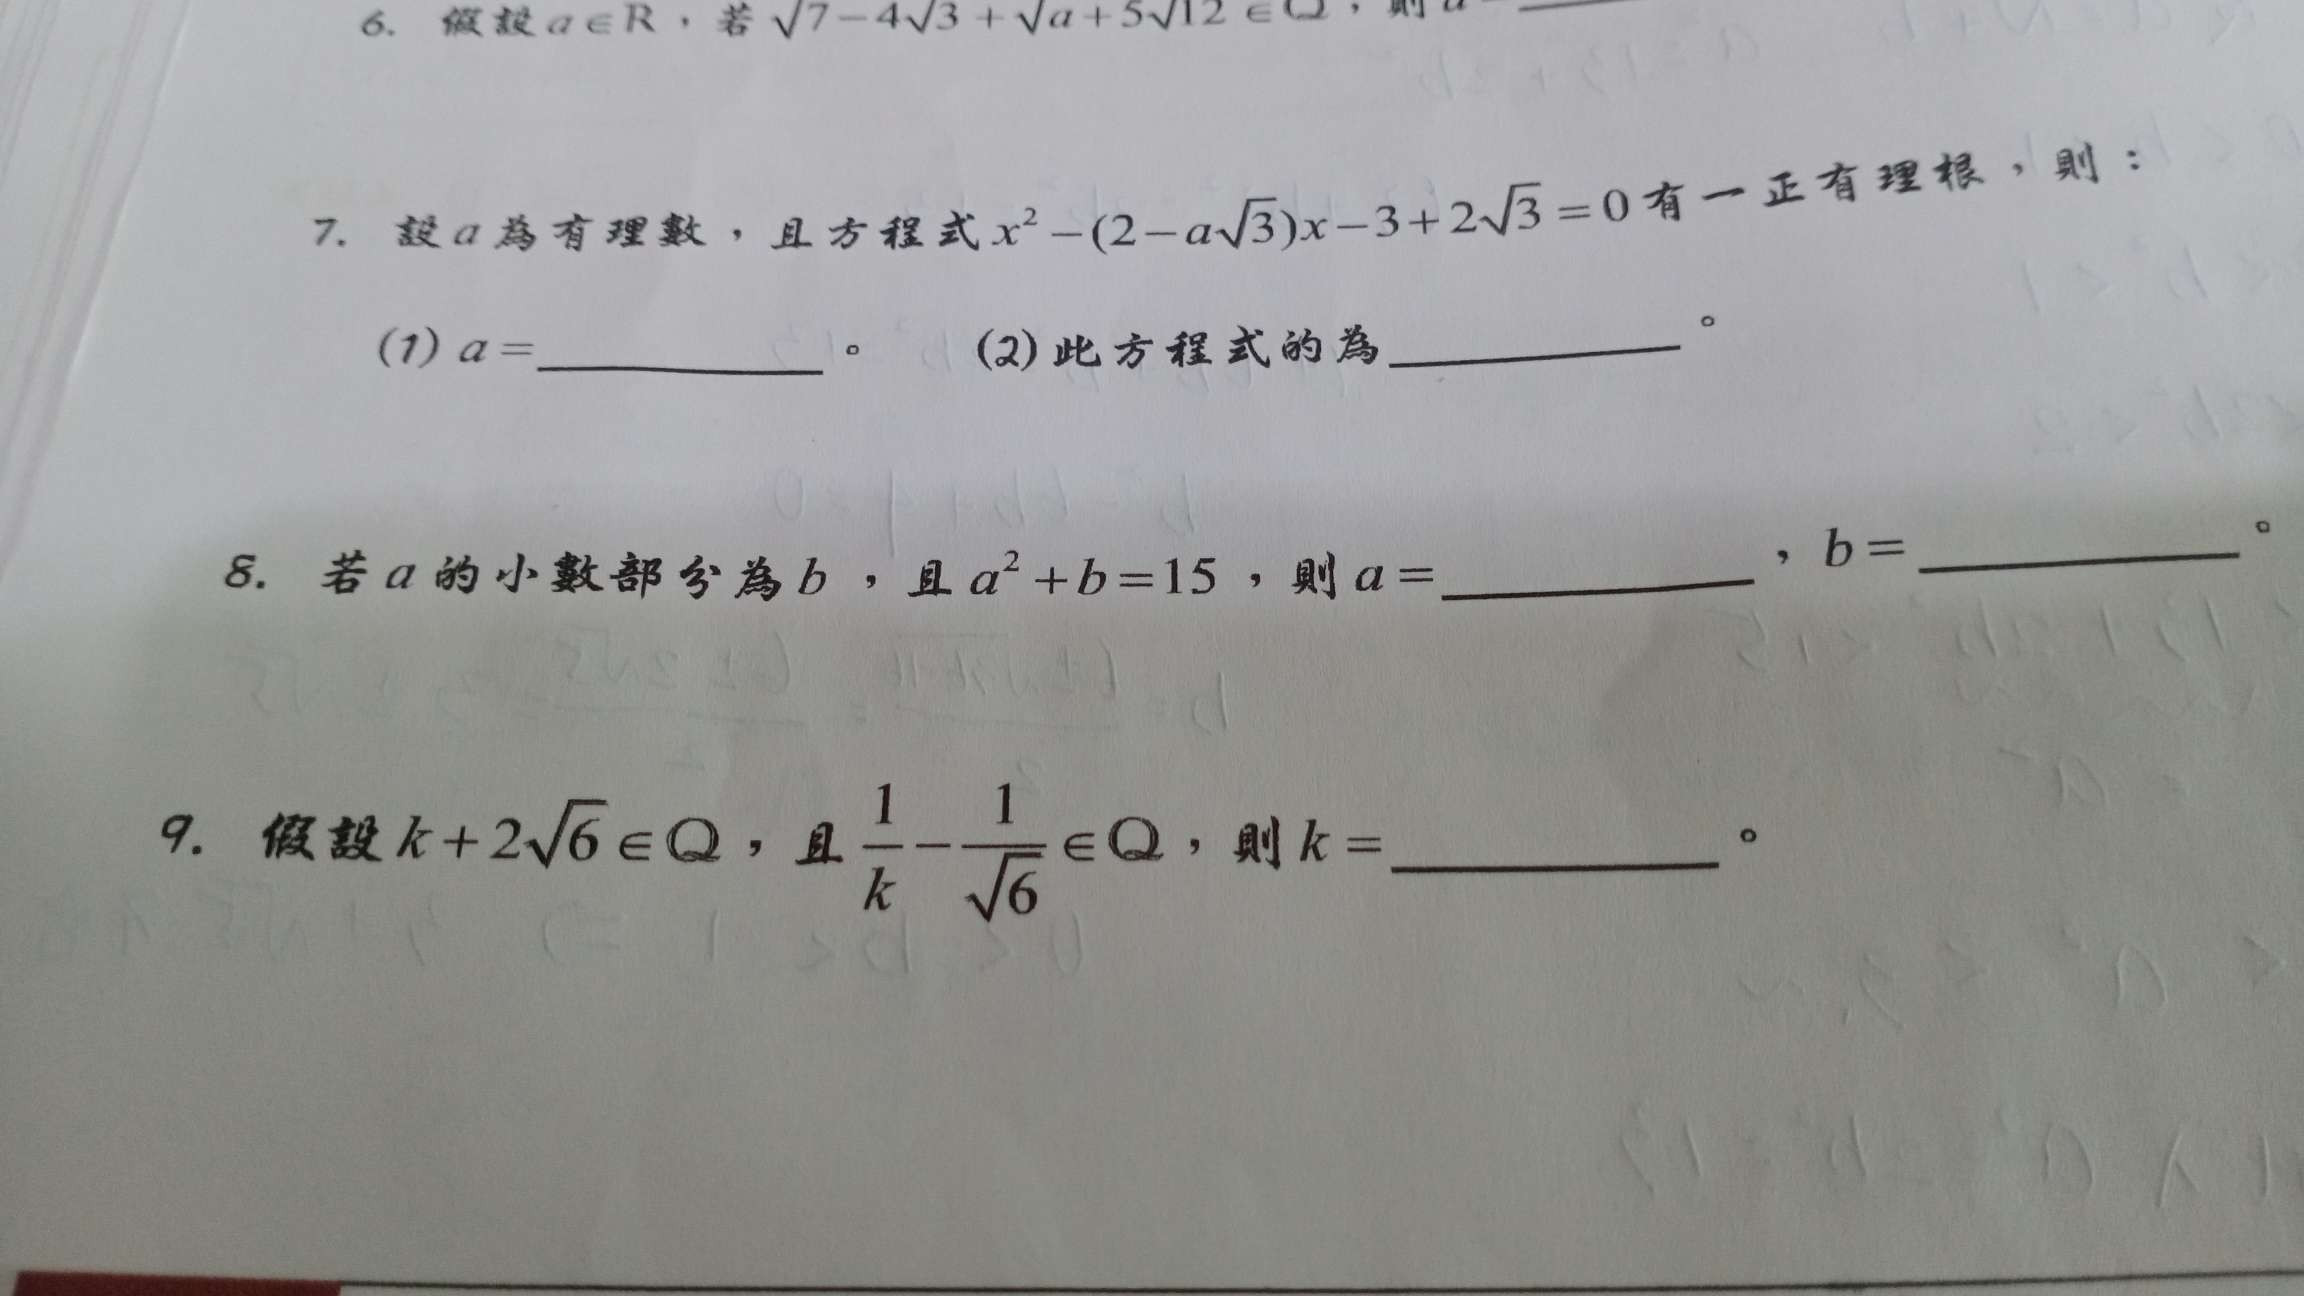 6. 假設 a∈R，若 √7−4√3 + √a+5√12 ∈Q，則 a
7. 設 a 為有理數，且方程式 x² −(2−a√3)x−3+2√3 =0 有一正有理根，則：
(1) a=________。 (2) 此方程式的為________。
8. 若 a 的小數部分為 b ，且 a² +b=15 ，則 a=________，b=________。
9. 假設 k+2√6 ∈Q，且 1/k − 1/√6 ∈Q，則 k=________。